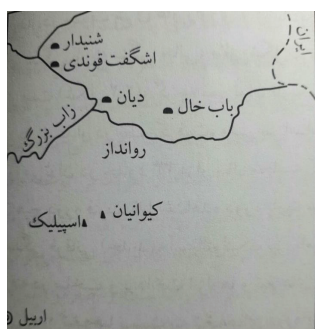 شنیدار
ایران
اشگفت قوندی
دیان
باب خال
زاب بزرگ
رواندز
کیوانیان
اسپیلیک
اربیل